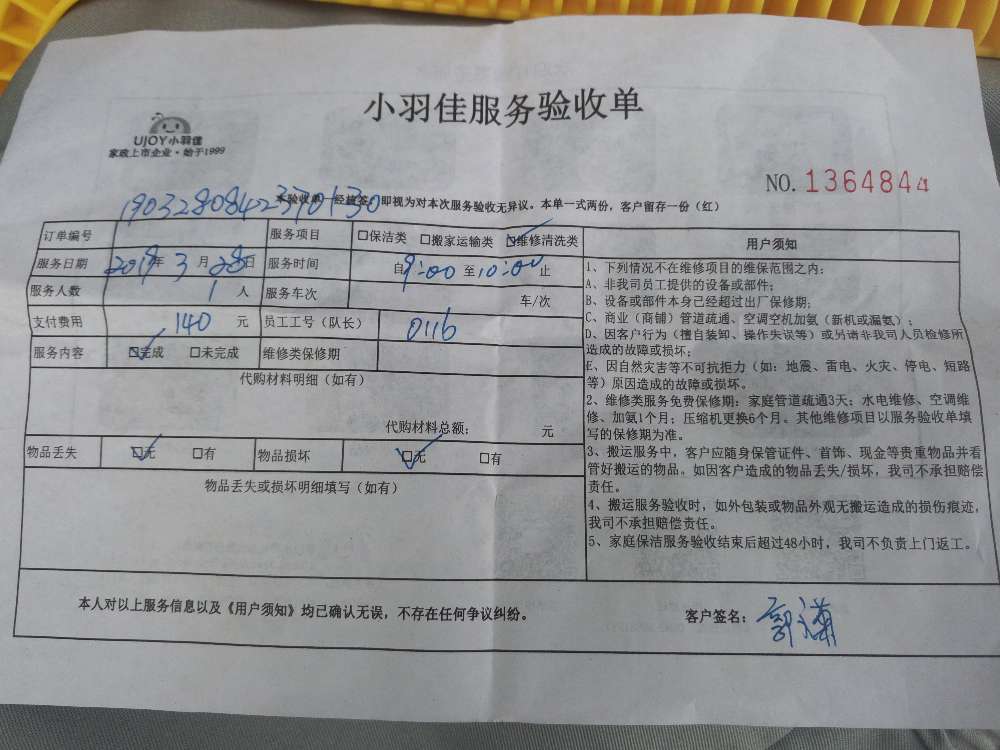 小羽佳服务验收单
UJOY小羽佳
家政上市企业·始于1999
NO. 1364844
本验收单一经接签,即视为对本次服务验收无异议。本单一式两份,客户留存一份(红)
订单编号 1903280842370130 服务项目 □保洁类 □搬家运输类 ☑维修清洗类
服务日期 2019年3月28日 服务时间 自9:00至10:00止
服务人数 1人 服务车次 车/次
支付费用 140元 员工工号(队长) 0116
服务内容 ☑完成 □未完成 维修类保修期
代购材料明细(如有)
代购材料总额: 元
物品丢失 ☑无 □有 物品损坏 ☑无 □有
物品丢失或损坏明细填写(如有)
用户须知
1、下列情况不在维修项目的维保范围之内:
A、非我司员工提供的设备或部件;
B、设备或部件本身已经超过出厂保修期;
C、商业(商铺)管道疏通、空调空机加氨(新机或漏氨);
D、因客户行为(擅自装卸、操作失误等)或另请非我司人员检修所
造成的故障或损坏;
E、因自然灾害等不可抗拒力(如:地震、雷电、火灾、停电、短路
等)原因造成的故障或损坏。
2、维修类服务免费保修期:家庭管道疏通3天;水电维修、空调维
修、加氨1个月;压缩机更换6个月。其他维修项目以服务验收单填
写的保修期为准。
3、搬运服务中,客户应随身保管证件、首饰、现金等贵重物品并看
管好搬运的物品。如因客户造成的物品丢失/损坏,我司不承担赔偿
责任。
4、搬运服务验收时,如外包装或物品外观无搬运造成的损伤痕迹,
我司不承担赔偿责任。
5、家庭保洁服务验收结束后超过48小时,我司不负责上门返工。
本人对以上服务信息以及《用户须知》均已确认无误,不存在任何争议纠纷。
客户签名: